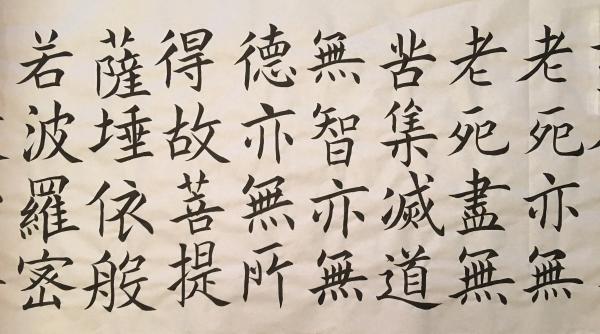 老死亦無
老死盡無
苦集滅道
無智亦無
德亦無所
得故菩提
薩埵依般
若波羅密